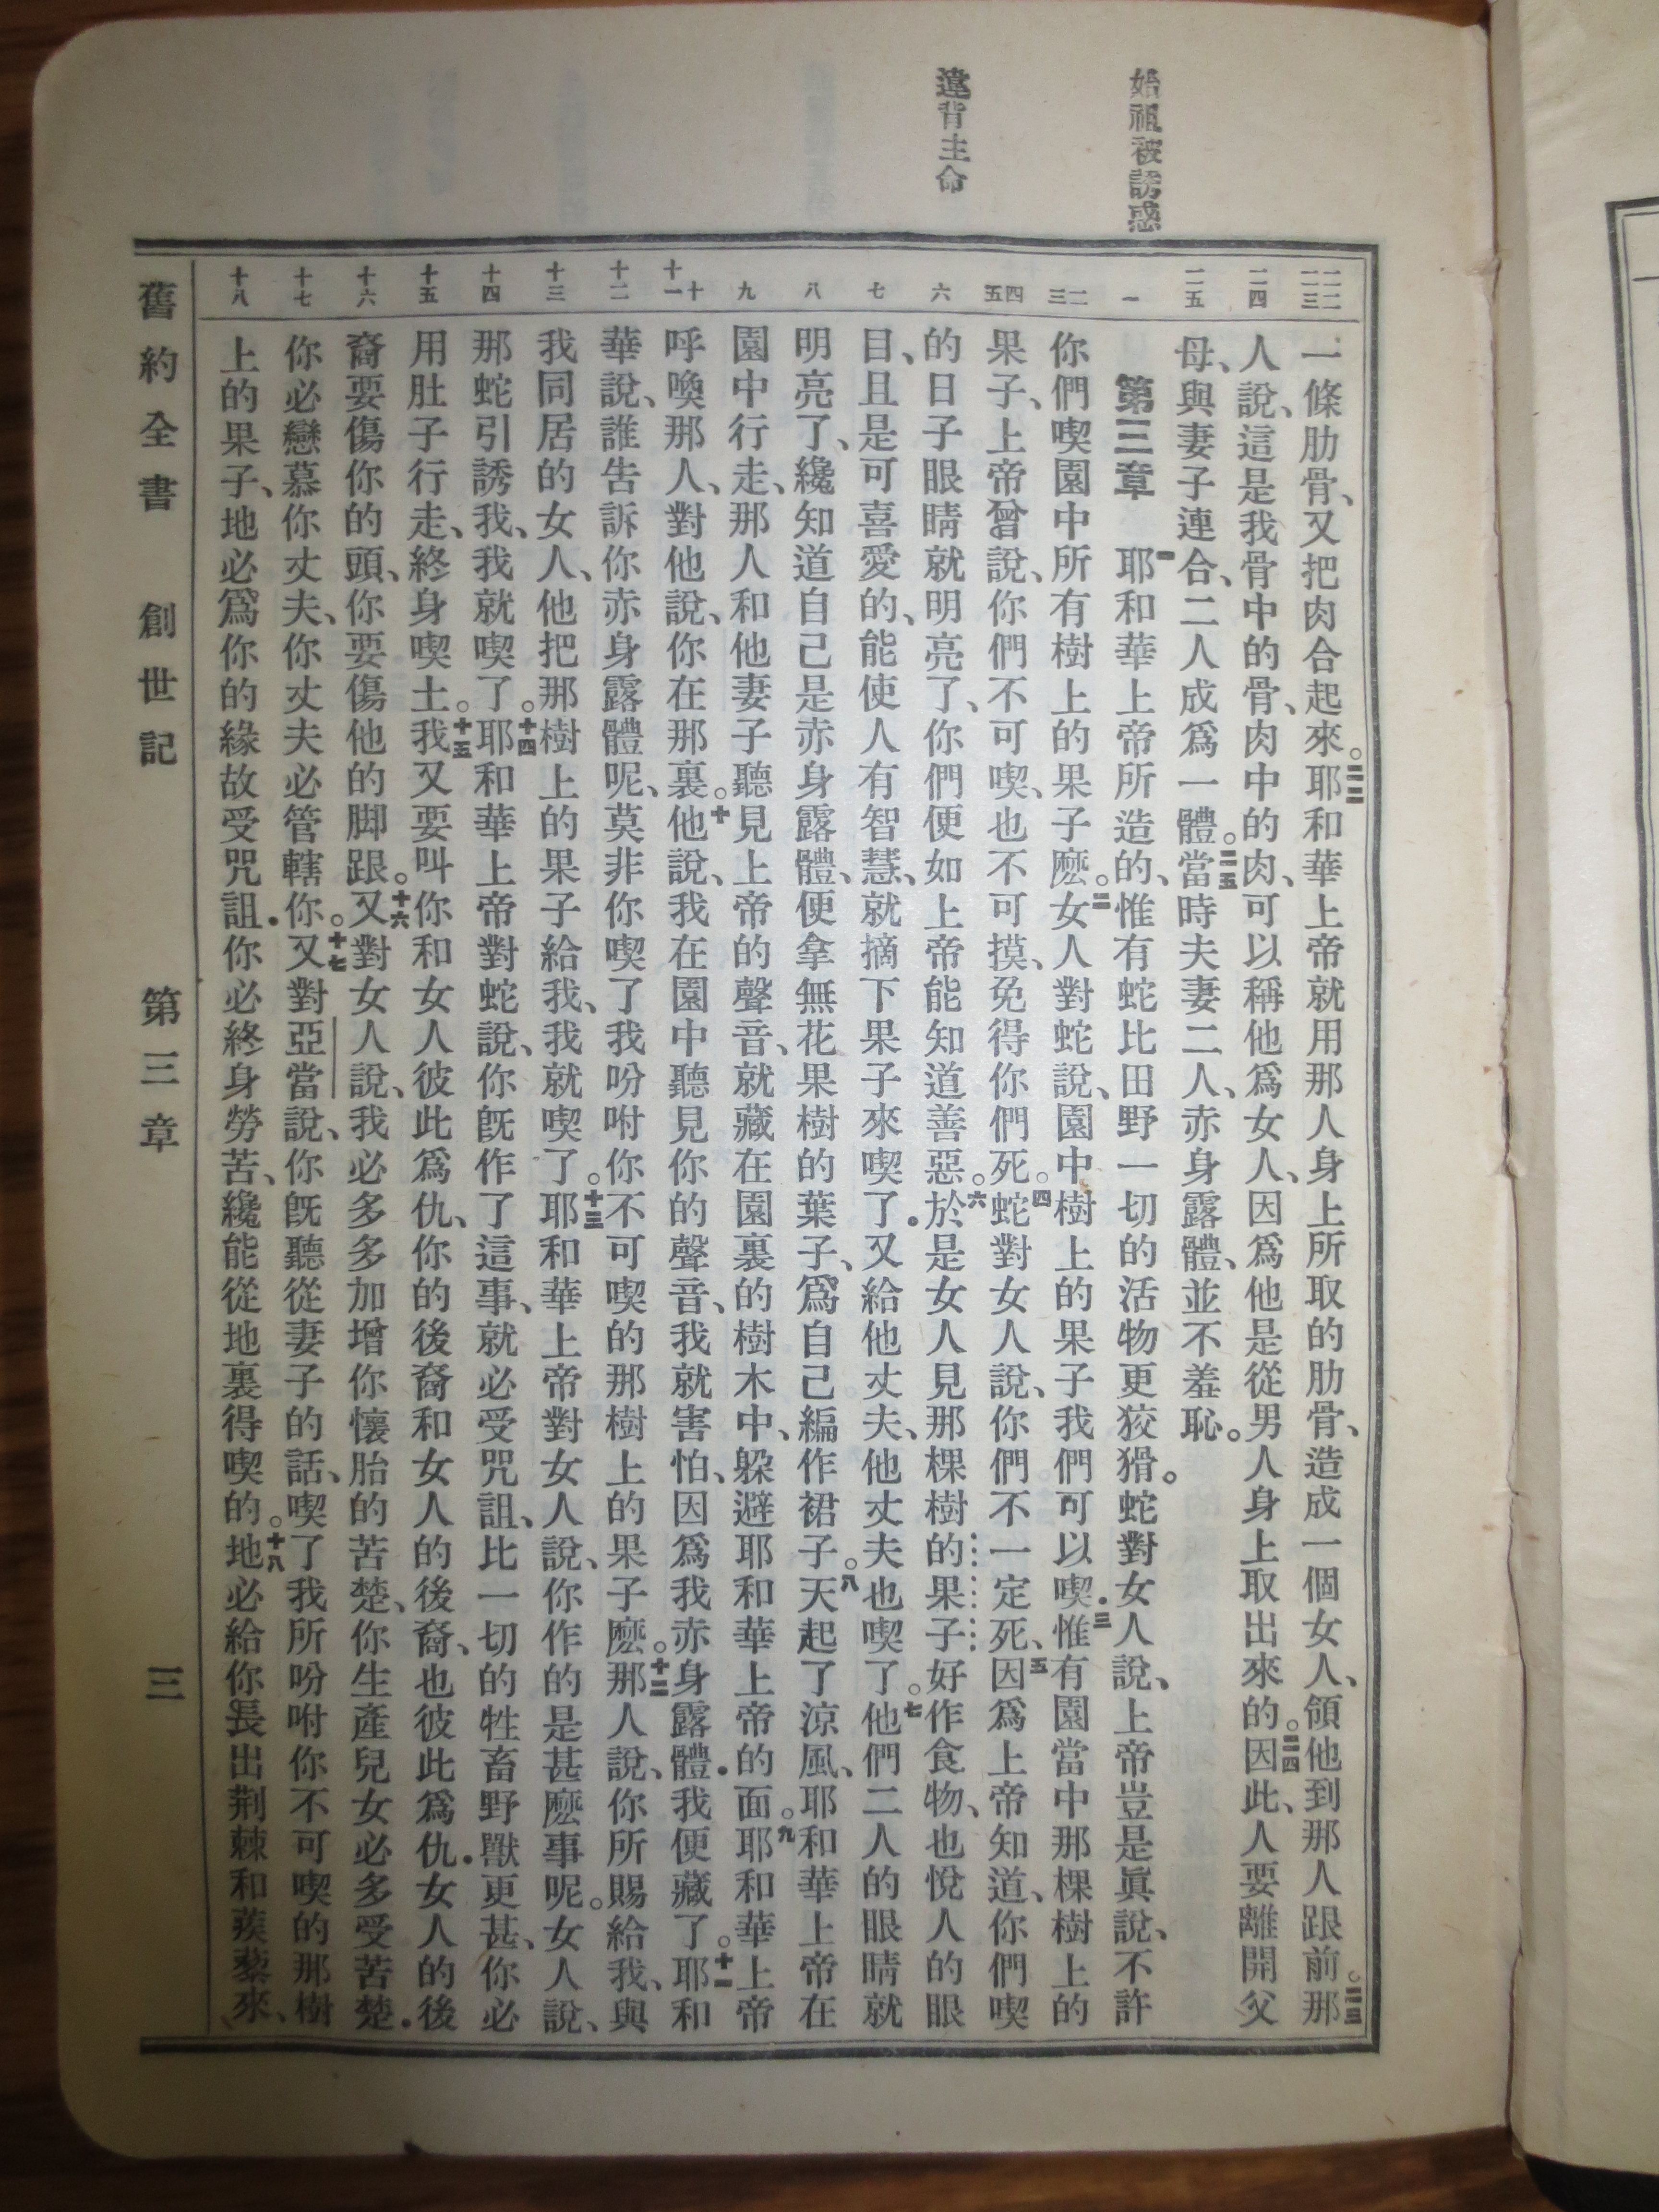 始祖被誘惑
違背主命
二二 二三
二四
二五
一
二 三
四 五
六
七
八
九
十 十一
十二
十三
十四
十五
十六
十七
十八
一條肋骨、又把肉合起來。二二耶和華上帝就用那人身上所取的肋骨、造成一個女人、領他到那人跟前。二三那
人說、這是我骨中的骨、肉中的肉、可以稱他爲女人、因爲他是從男人身上取出來的。二四因此、人要離開父
母、與妻子連合、二人成爲一體。二五當時夫妻二人、赤身露體、並不羞恥。
第三章 一耶和華上帝所造的、惟有蛇比田野一切的活物更狡猾。蛇對女人說、上帝豈是眞說、不許
你們喫園中所有樹上的果子麽。二女人對蛇說、園中樹上的果子我們可以喫．三惟有園當中那棵樹上的
果子、上帝曾說、你們不可喫、也不可摸、免得你們死。四蛇對女人說、你們不一定死、五因爲上帝知道、你們喫
的日子眼睛就明亮了、你們便如上帝能知道善惡。六於是女人見那棵樹的果子好作食物、也悅人的眼
目、且是可喜愛的、能使人有智慧、就摘下果子來喫了．又給他丈夫、他丈夫也喫了。七他們二人的眼睛就
明亮了、纔知道自己是赤身露體、便拿無花果樹的葉子、爲自己編作裙子。八天起了涼風、耶和華上帝在
園中行走、那人和他妻子聽見上帝的聲音、就藏在園裏的樹木中、躲避耶和華上帝的面。九耶和華上帝
呼喚那人、對他說、你在那裏。十他說、我在園中聽見你的聲音、我就害怕、因爲我赤身露體．我便藏了。十一耶和
華說、誰告訴你赤身露體呢、莫非你喫了我吩咐你不可喫的那樹上的果子麽。十二那人說、你所賜給我、與
我同居的女人、他把那樹上的果子給我、我就喫了。十三耶和華上帝對女人說、你作的是甚麽事呢。女人說、
那蛇引誘我、我就喫了。十四耶和華上帝對蛇說、你旣作了這事、就必受咒詛、比一切的牲畜野獸更甚、你必
用肚子行走、終身喫土。十五我又要叫你和女人彼此爲仇、你的後裔和女人的後裔、也彼此爲仇．女人的後
裔要傷你的頭、你要傷他的脚跟。十六又對女人說、我必多多加增你懷胎的苦楚、你生產兒女必多受苦楚．
你必戀慕你丈夫、你丈夫必管轄你。十七又對亞當說、你旣聽從妻子的話、喫了我所吩咐你不可喫的那樹
上的果子、地必爲你的緣故受咒詛．你必終身勞苦、纔能從地裏得喫的。十八地必給你長出荆棘和蒺藜來、
舊約全書 創世記 第三章 三